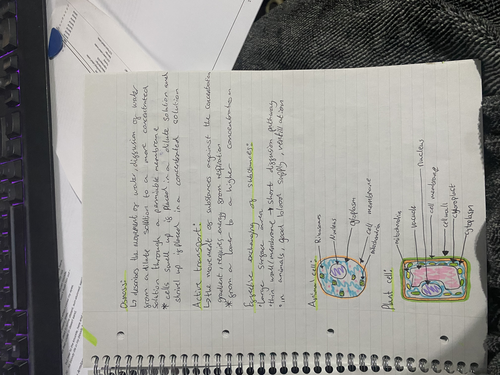 Osmosis:
↳ describes the movement of water, diffusion of water
from a dilute solution to a more concentrated
solution through a permeable membrane
* cells swell up if placed in a dilute solution and
shrivel up if placed in a concentrated solution
Active transport:
↳ the movement of substances against the concentration
gradient, requires energy from respiration
* from a lower to a higher concentration
Effective exchanging of substances:
· large surface area
· thin wall/membrane → short diffusion pathway
· in animals, good blood supply, ventilation
Animal cell:
Ribosomes
Nucleus
cytoplasm
cell membrane
mitochondria
Plant cell:
mitochondria
vacuole
nucleus
cell membrane
cell wall
chloroplast
cytoplasm